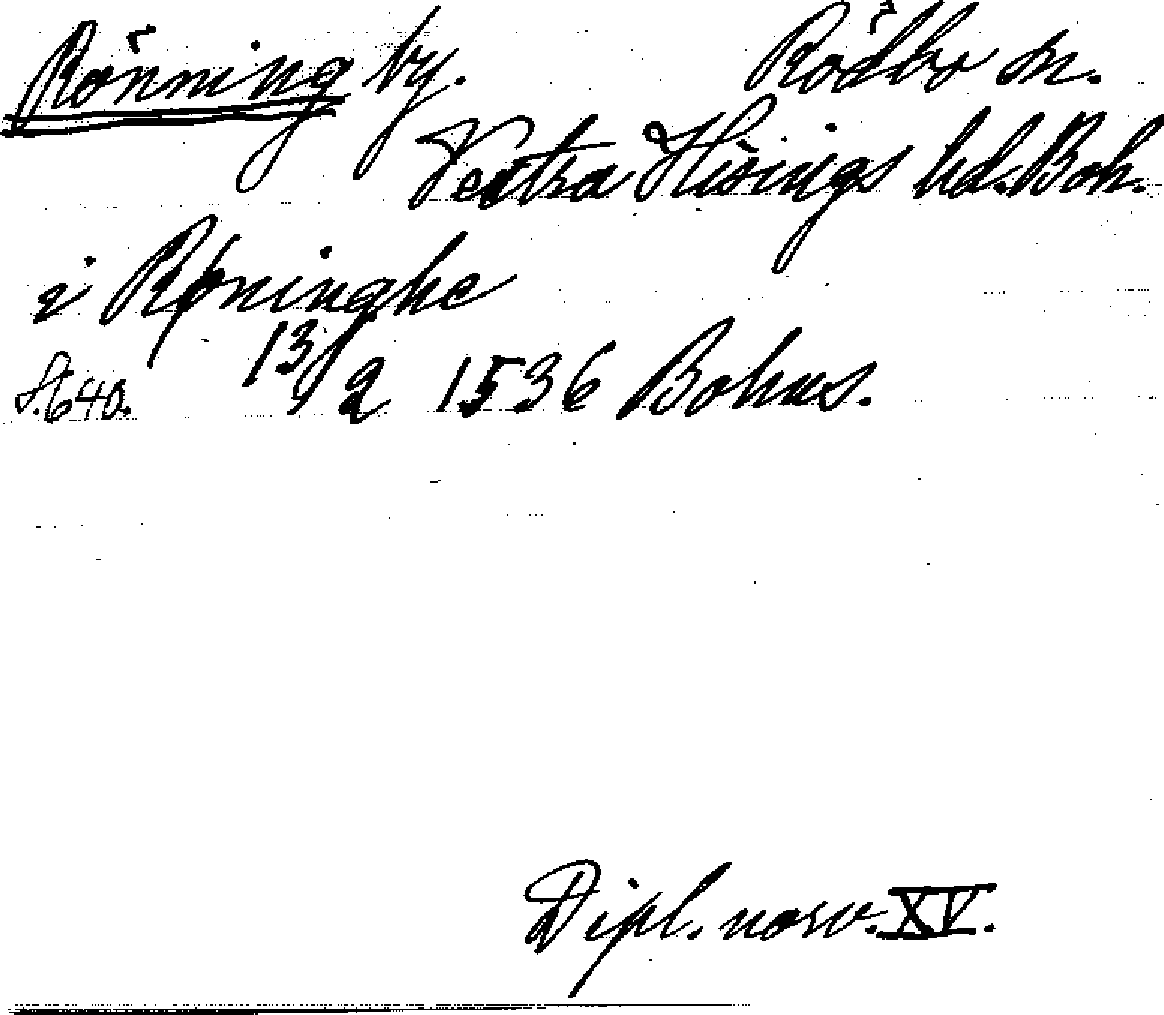 Rönning by. Rödbo sn.
Vestra Hisings hd. Boh.
i Røninghe
S. 640. 13/2 1536 Bohus.
Dipl. norv. XV.